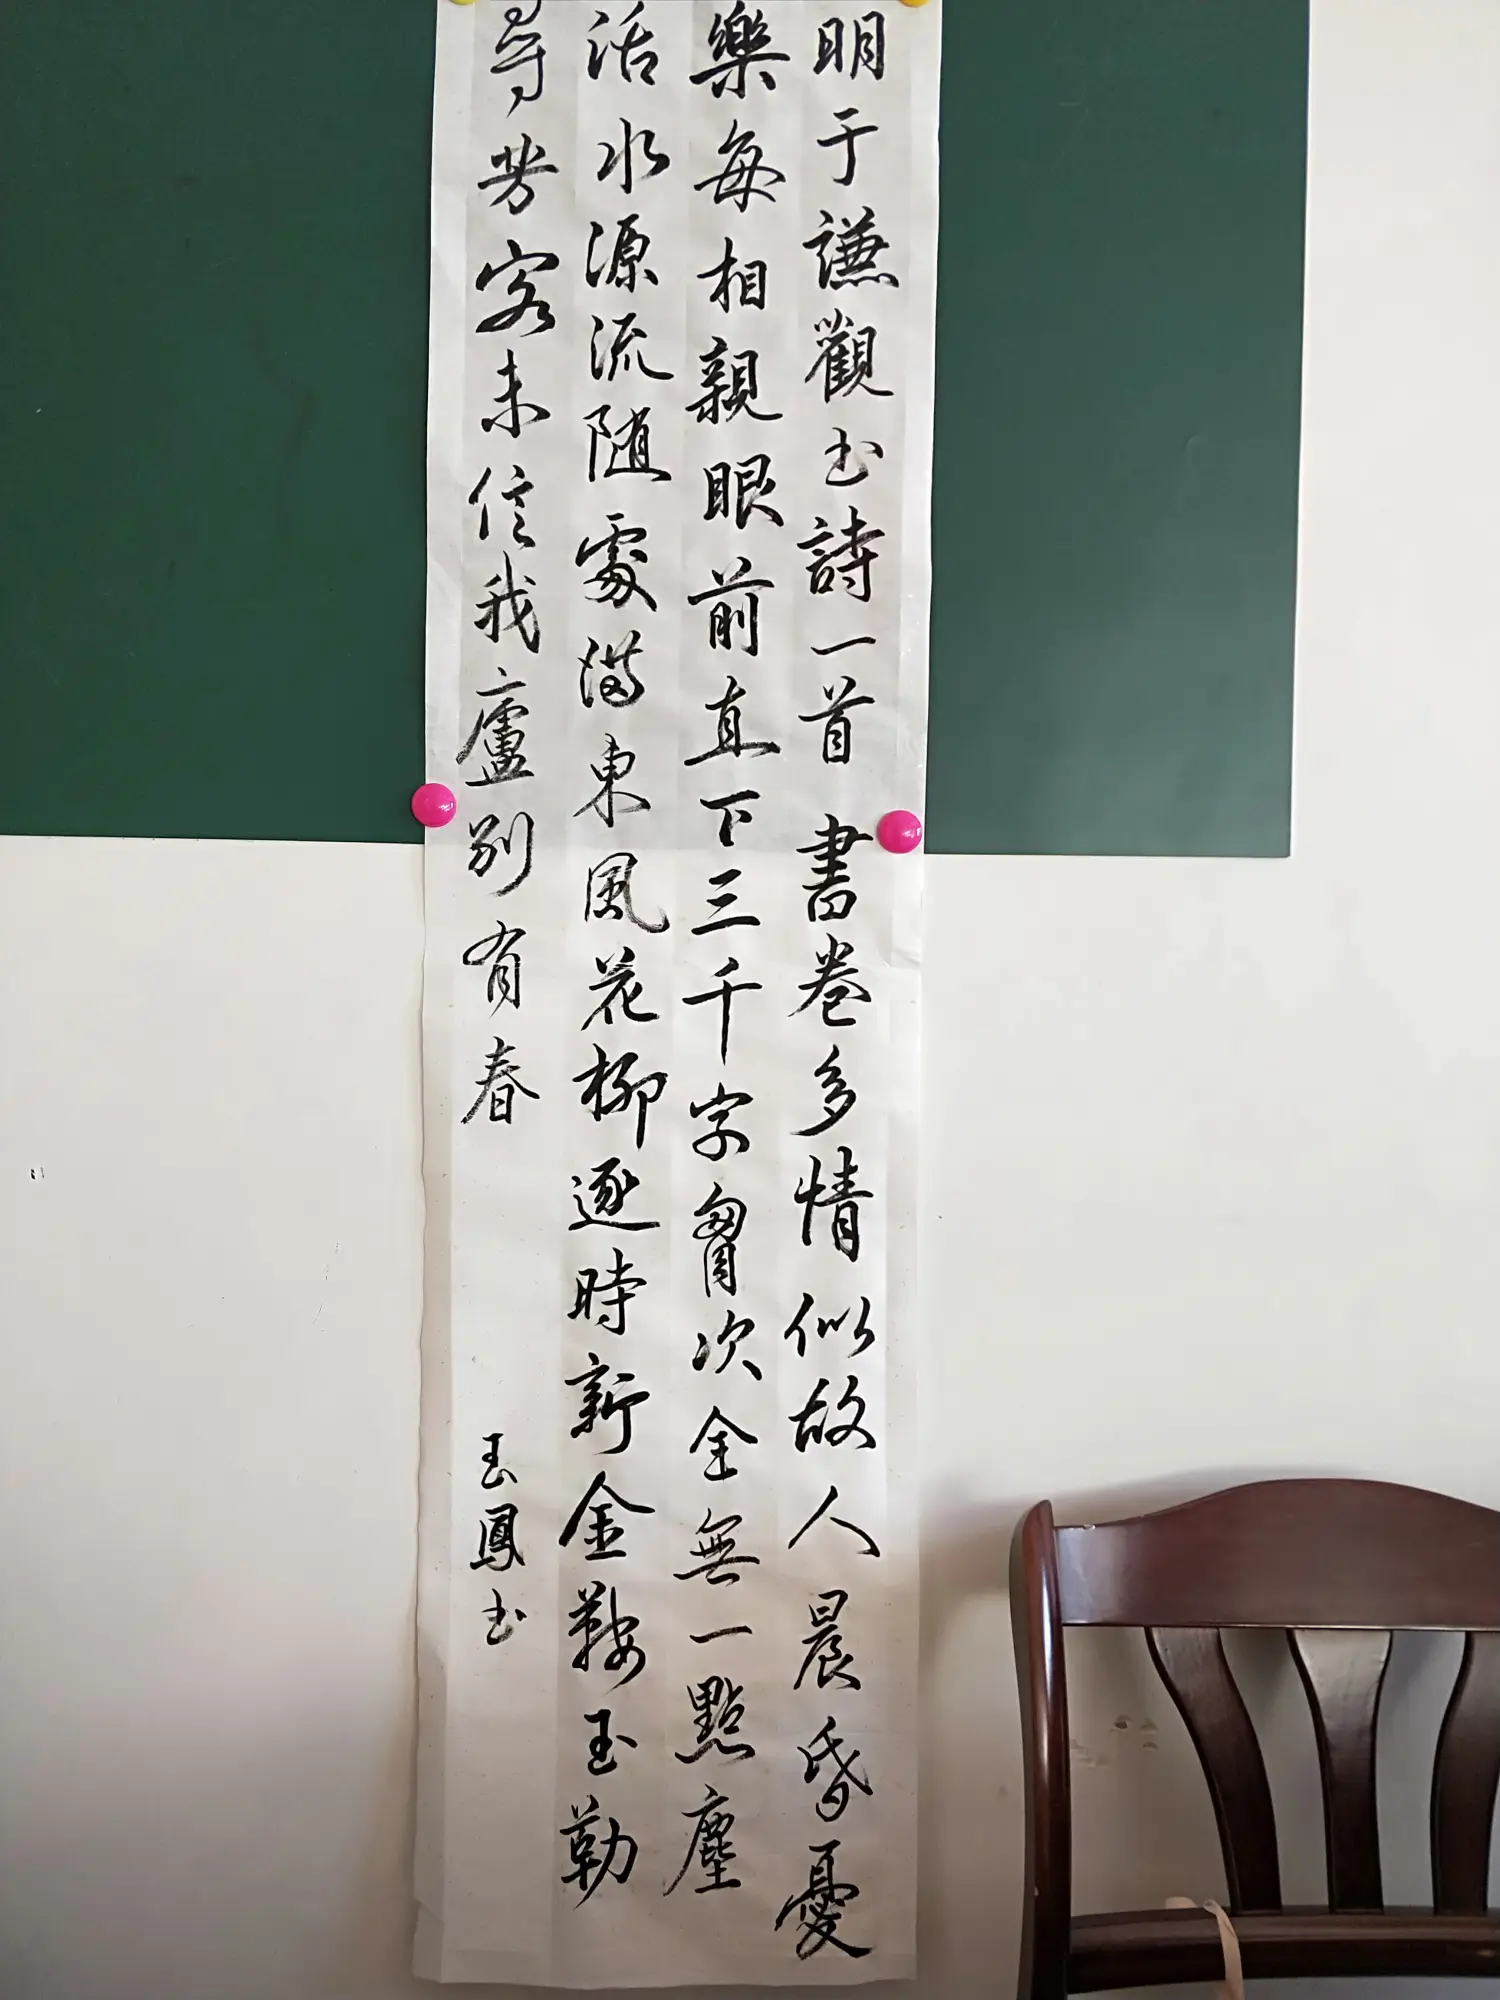 明于謙觀书詩一首 書卷多情似故人晨昏憂
樂每相親眼前直下三千字胷次全無一點塵
活水源流随處满東風花柳逐時新金鞍玉勒
尋芳客未信我廬别有春
玉鳳书